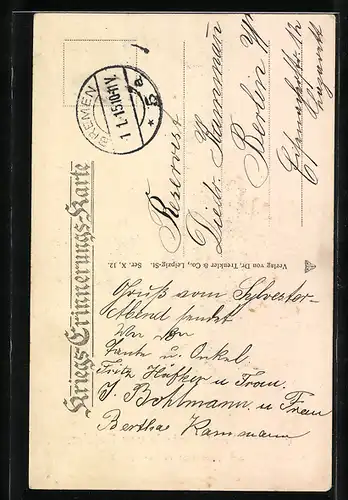 Kriegs-Erinnerungs-Karte
BREMEN
1.1.15.10-11V
* 5 a.
Reservist
Dietr. Kammann
Berlin
Lazarett
Verlag von Dr. Trenkler & Co., Leipzig-St. Ser. X, 12.
Gruß vom Sylvester-
Abend sendet
Tante u. Onkel.
Fritz Häfker u Frau.
J. Bohlmann u Frau
Bertha Kammann